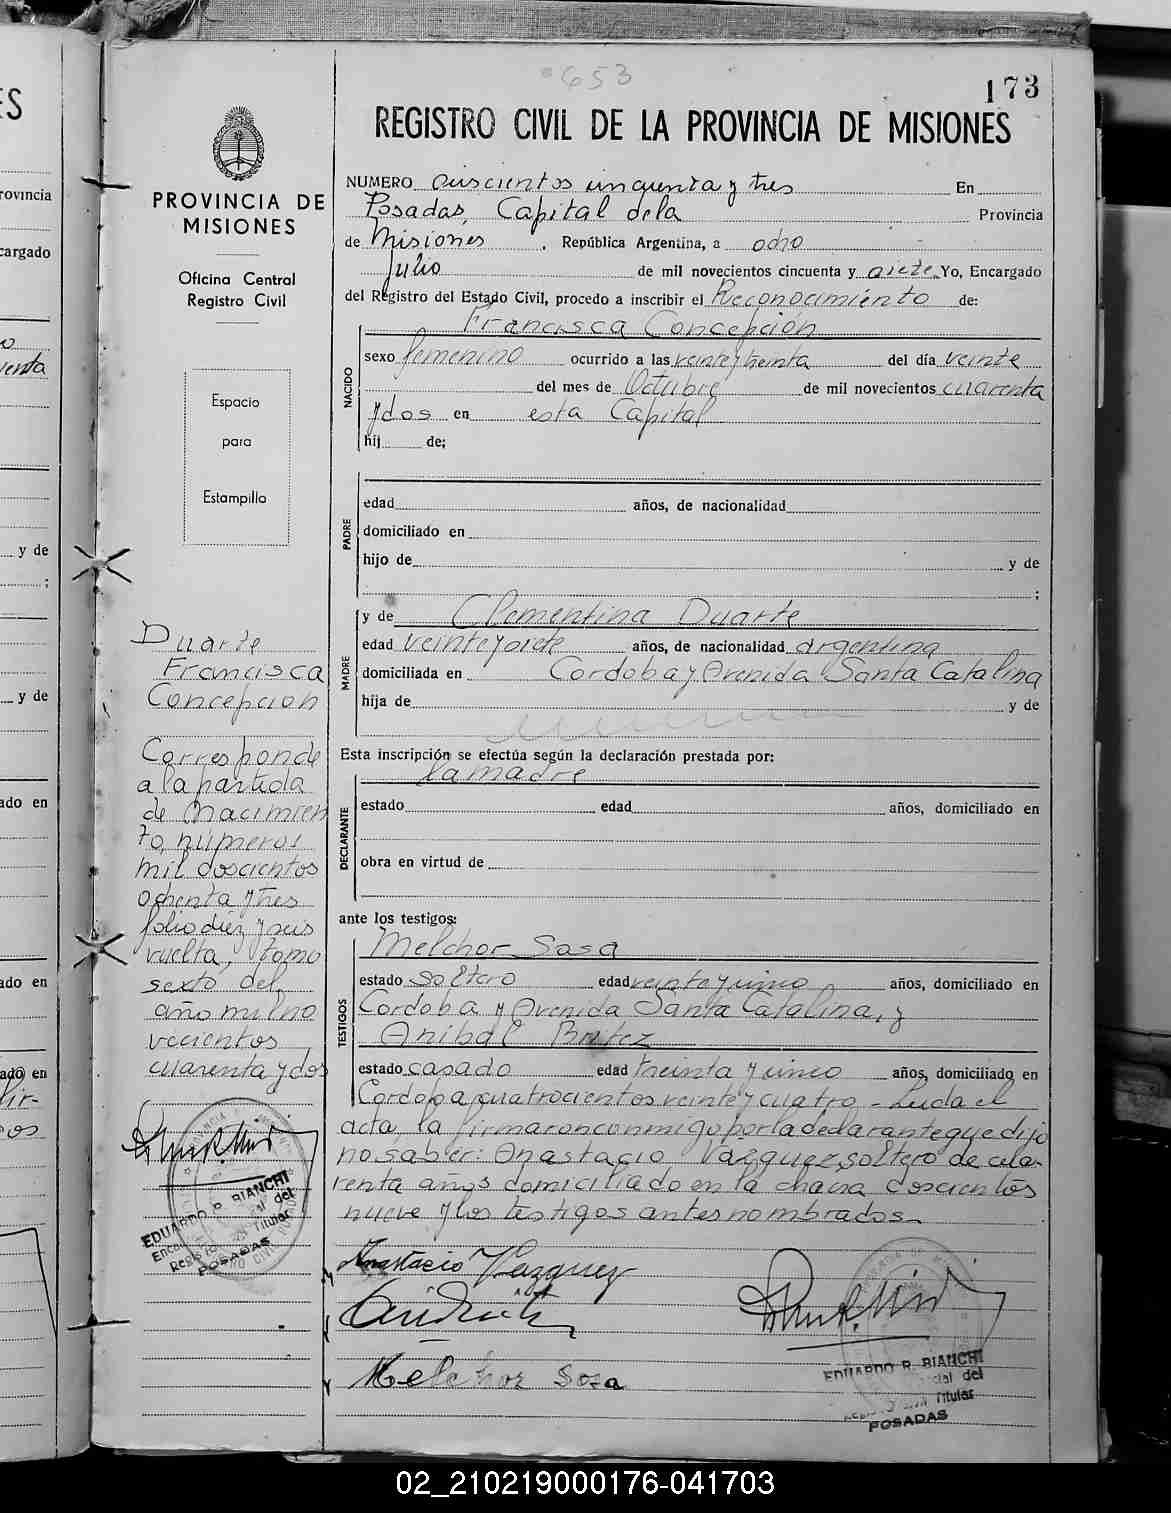 653
173
REGISTRO CIVIL DE LA PROVINCIA DE MISIONES
PROVINCIA DE
MISIONES
Oficina Central
Registro Civil
Espacio
para
Estampilla
NUMERO seiscientos cincuenta y tres En
Posadas, Capital dela Provincia
de Misiones, República Argentina, a ocho
Julio de mil novecientos cincuenta y siete. Yo, Encargado
del Registro del Estado Civil, procedo a inscribir el Reconocimiento de:
Francisca Concepción
NACIDO
sexo femenino ocurrido a las veinte y treinta del día veinte
del mes de Octubre de mil novecientos cuarenta
y dos en esta Capital
hij de;
PADRE
edad años, de nacionalidad
domiciliado en
hijo de y de
;
MADRE
y de Clementina Duarte
edad veinte y siete años, de nacionalidad argentina
domiciliada en Cordoba y Avenida Santa Catalina
hija de y de
Esta inscripción se efectúa según la declaración prestada por:
la madre
DECLARANTE
estado edad años, domiciliado en
obra en virtud de
ante los testigos:
TESTIGOS
Melchor Sosa
estado soltero edad veinte y cinco años, domiciliado en
Cordoba y Avenida Santa Catalina, y
Anibal Britez
estado casado edad treinta y cinco años, domiciliado en
Cordoba cuatrocientos veinte y cuatro - Leida el
acta, la firmaron conmigo por la declarante que dijo
no saber: Anastacio Vazquez, soltero de cua-
renta años domiciliado en la chacra doscientos
nueve y los testigos antes nombrados.
Anastacio Vazquez
Melchor Sosa
EDUARDO R. BIANCHI
Titular
POSADAS
Duarte
Francisca
Concepcion
Corresponde
a la partida
de Nacimien
to, número
mil doscientos
ochenta y tres
folio diez y seis
vuelta, tomo
sexto del
año mil no
vecientos
cuarenta y dos
EDUARDO R. BIANCHI
Titular
POSADAS
ES
rovincia
cargado
y de
;
y de
ado en
ado en
ado en
02_210219000176-041703